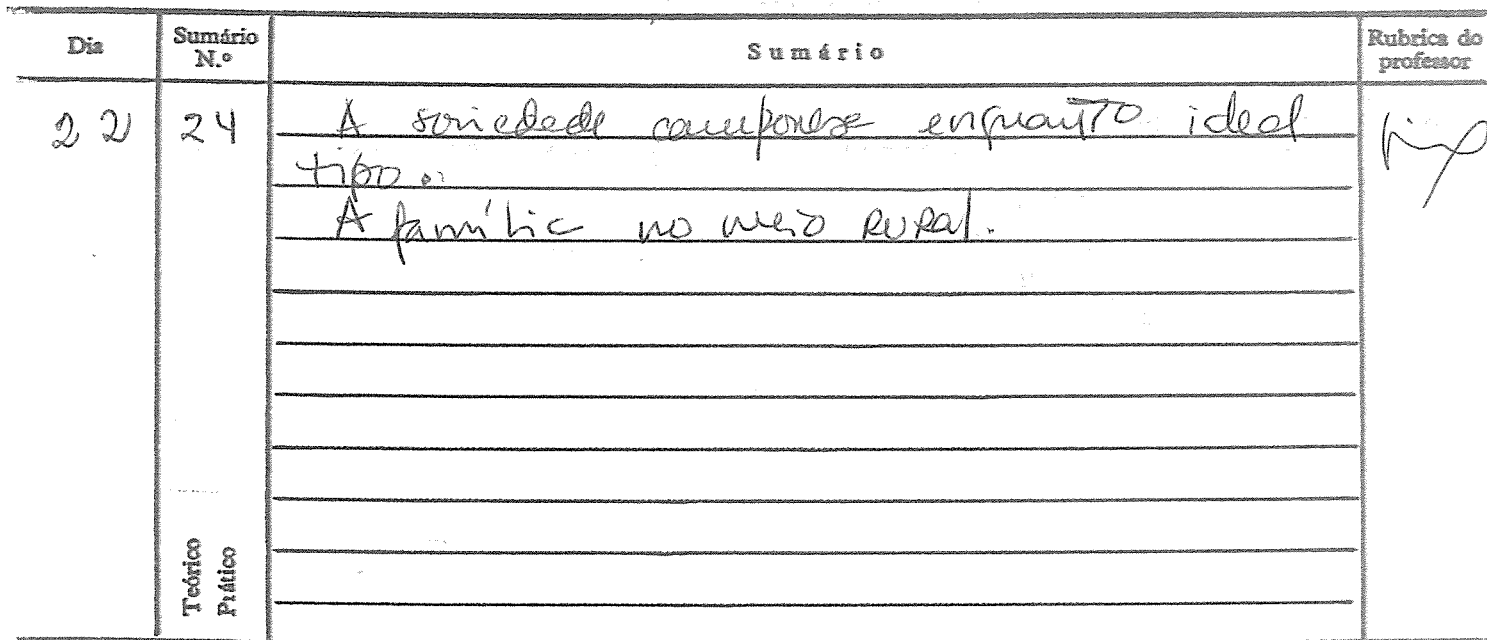 Dia Sumário N.º Sumário Rubrica do professor
22 24 A sociedade camponesa enquanto ideal
tipo.
A família no meio rural.
Teórico
Prático